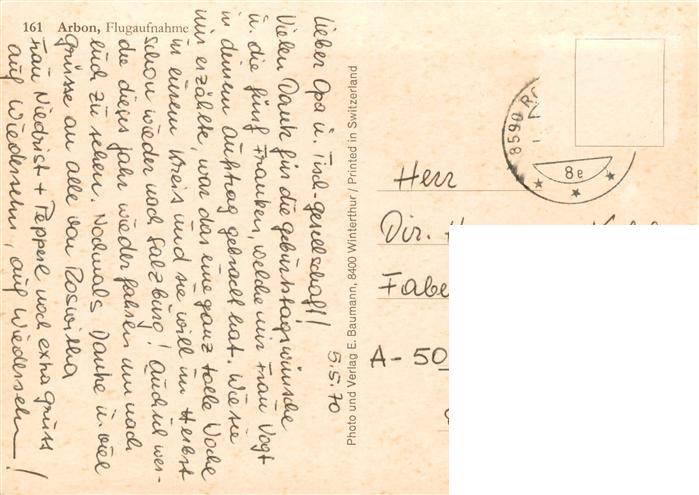 161 Arbon, Flugaufnahme
5.5.70
Lieber Opa u. Tisch-gesellschaft!
Vielen Dank für die geburtstagswünsche
u. die fünf Franken, welche mir Frau Vogt
in deinem auftrag gebracht hat. Wie sie
mir erzählte, war das eine ganz tolle Woche
in eurem Kreis und sie will im Herbst
schon wieder nach Salzburg! auch ich wer-
de dieses Jahr wieder fahren um nach
euch zu sehen. Nochmals Danke u. viel
Grüsse an alle von Roswitha
Frau Niedrist + Pepperl noch extra grüsse
auf Wiedersehn, auf Wiedersehn!
Photo und Verlag E. Baumann, 8400 Winterthur / Printed in Switzerland
8590
8e
Herr
Dir.
Fabe
A-50